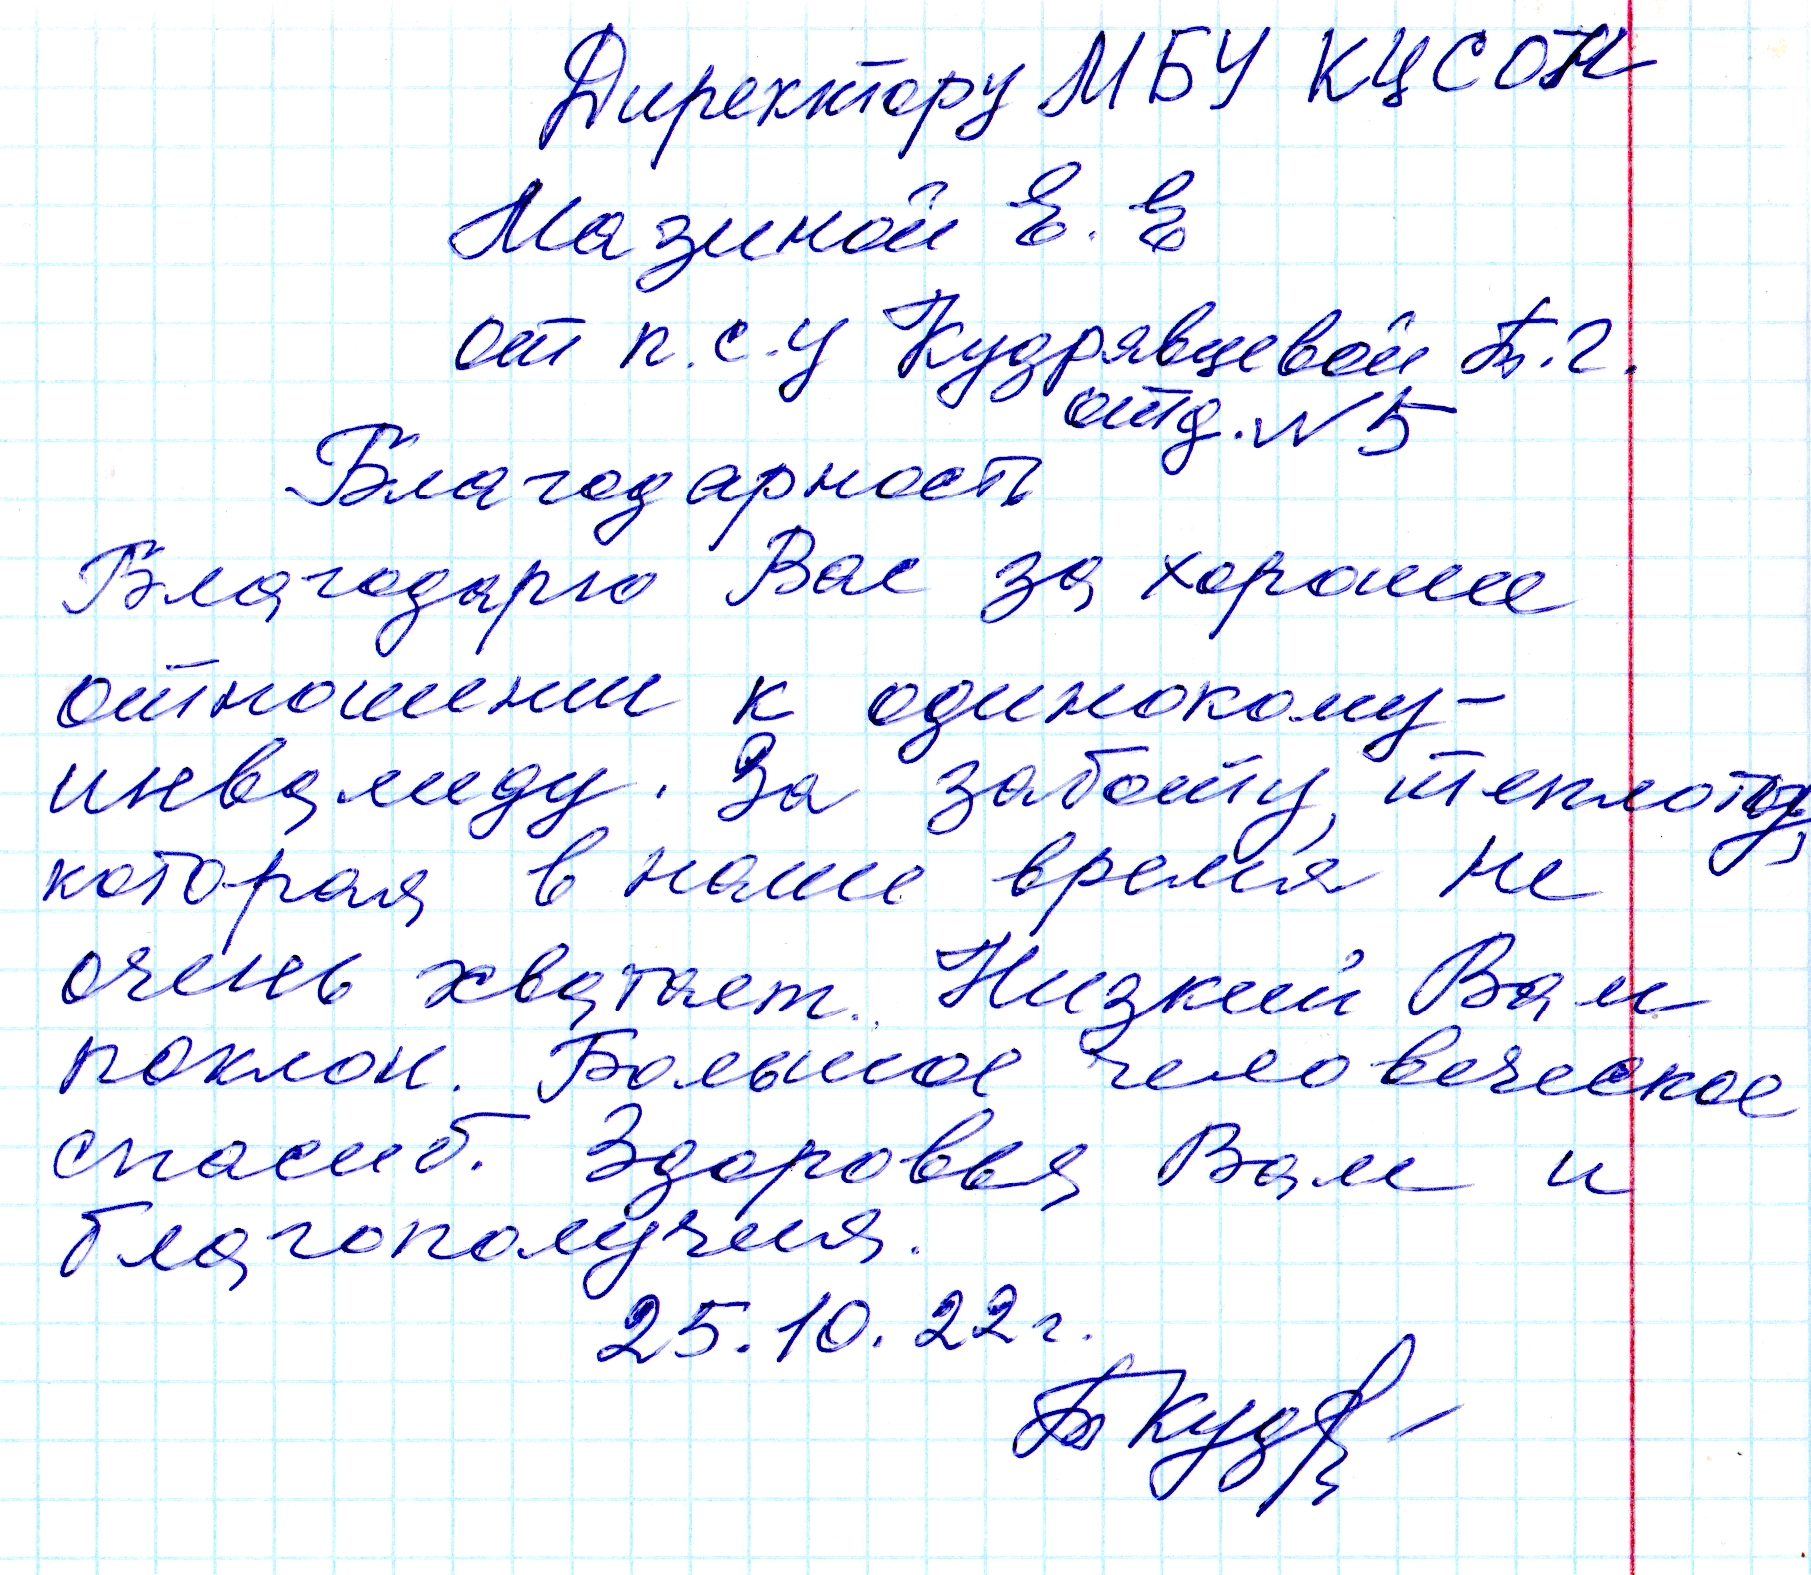 Директору МБУ КЦСОН
Мазиной Е. Е
от п.с.у Кудрявцевой Б.Г.
отд. N 5
Благодарность
Благодарю Вас за хорошие
отношении к одинокому-
инвалиду. За заботу, теплоту,
которая в наше время не
очень хватает. Низкий Вам
поклон. Большое человеческое
спасиб. Здоровья Вам и
благополучия.
25.10.22г.
БКудр